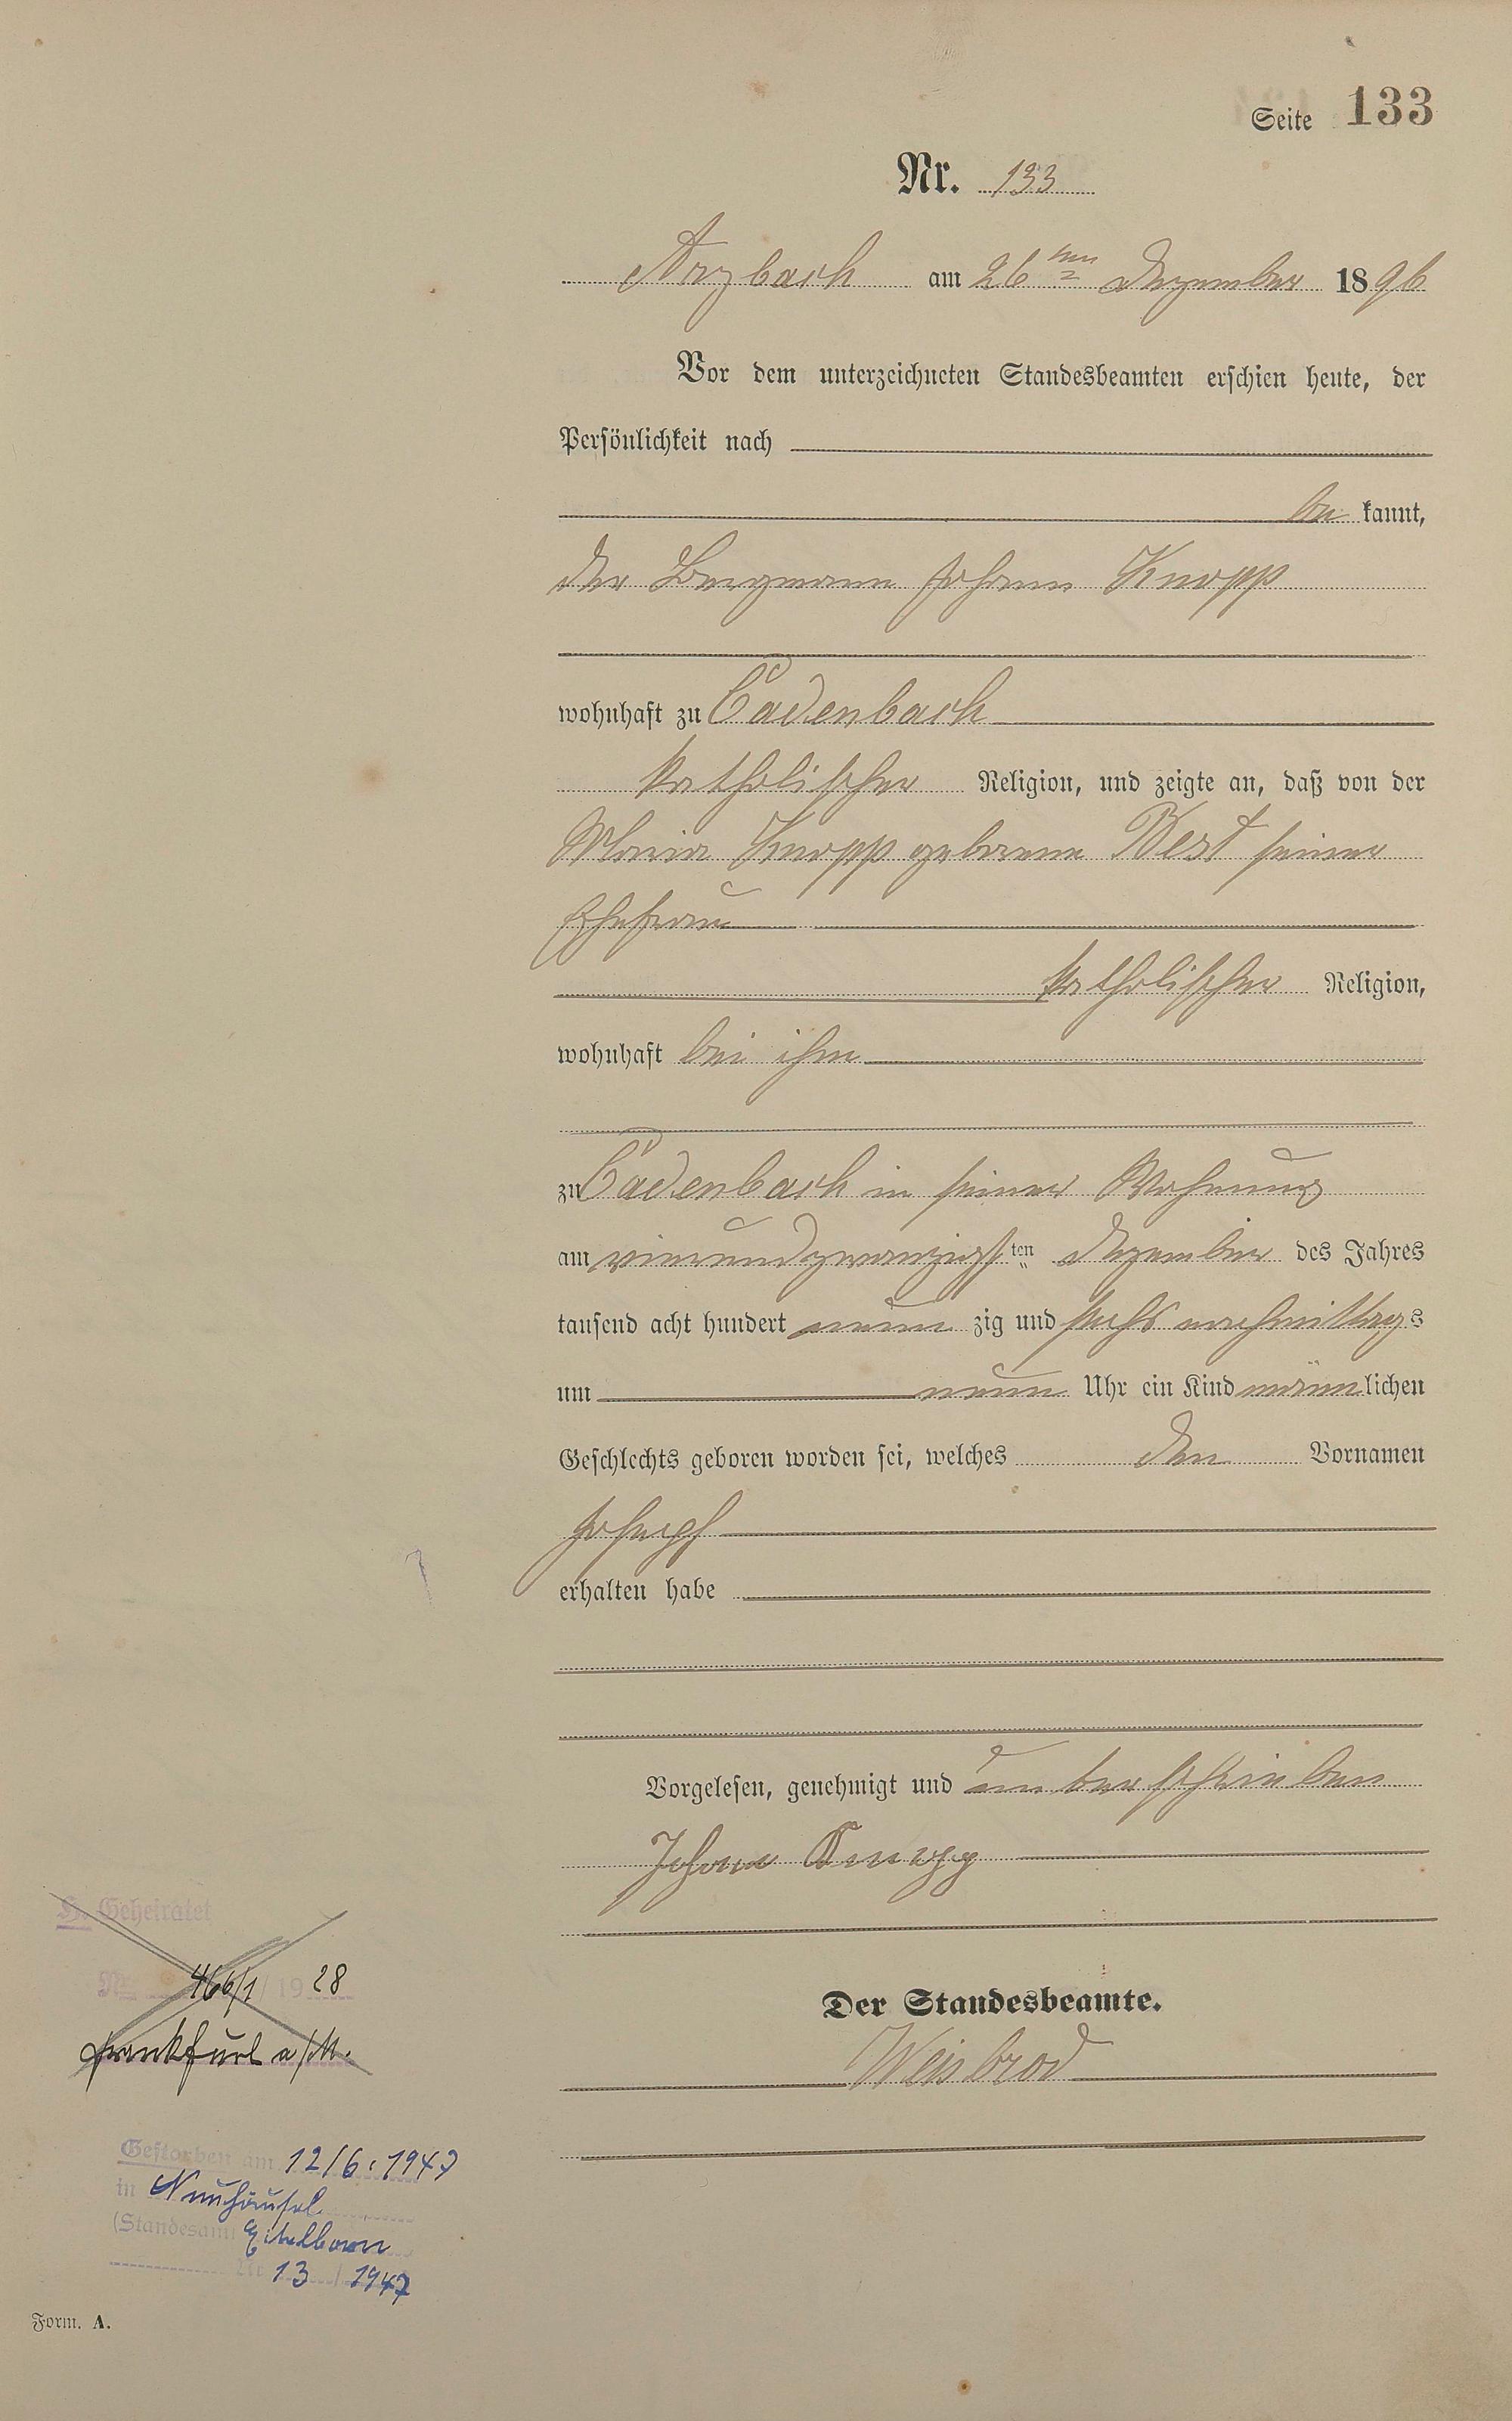 Seite 133
Nr. 133
Arzbach am 26ten Dezember 1896
Vor dem unterzeichneten Standesbeamten erschien heute, der
Persönlichkeit nach
be kannt,
der Bergmann Johann Knopp
wohnhaft zu Cadenbach
katholischer Religion, und zeigte an, daß von der
Maria Knopp geborene Best seiner
Ehefrau
katholischer Religion,
wohnhaft bei ihm
zu Cadenbach in seiner Wohnung
am vierundzwanzigsten Dezember des Jahres
tausend acht hundert neun zig und sechs nachmittags
um neun Uhr ein Kind männlichen
Geschlechts geboren worden sei, welches den Vornamen
Joseph
erhalten habe
Vorgelesen, genehmigt und unterschrieben
Johann Knopp
Der Standesbeamte.
Weisbrod
H. Geheiratet
Nr. 466/1 / 1928
Frankfurt a/M.
Gestorben am 12/6. 1947
in Neuhäusel
(Standesamt Eitelborn
Nr. 13 / 1947
Form. A.